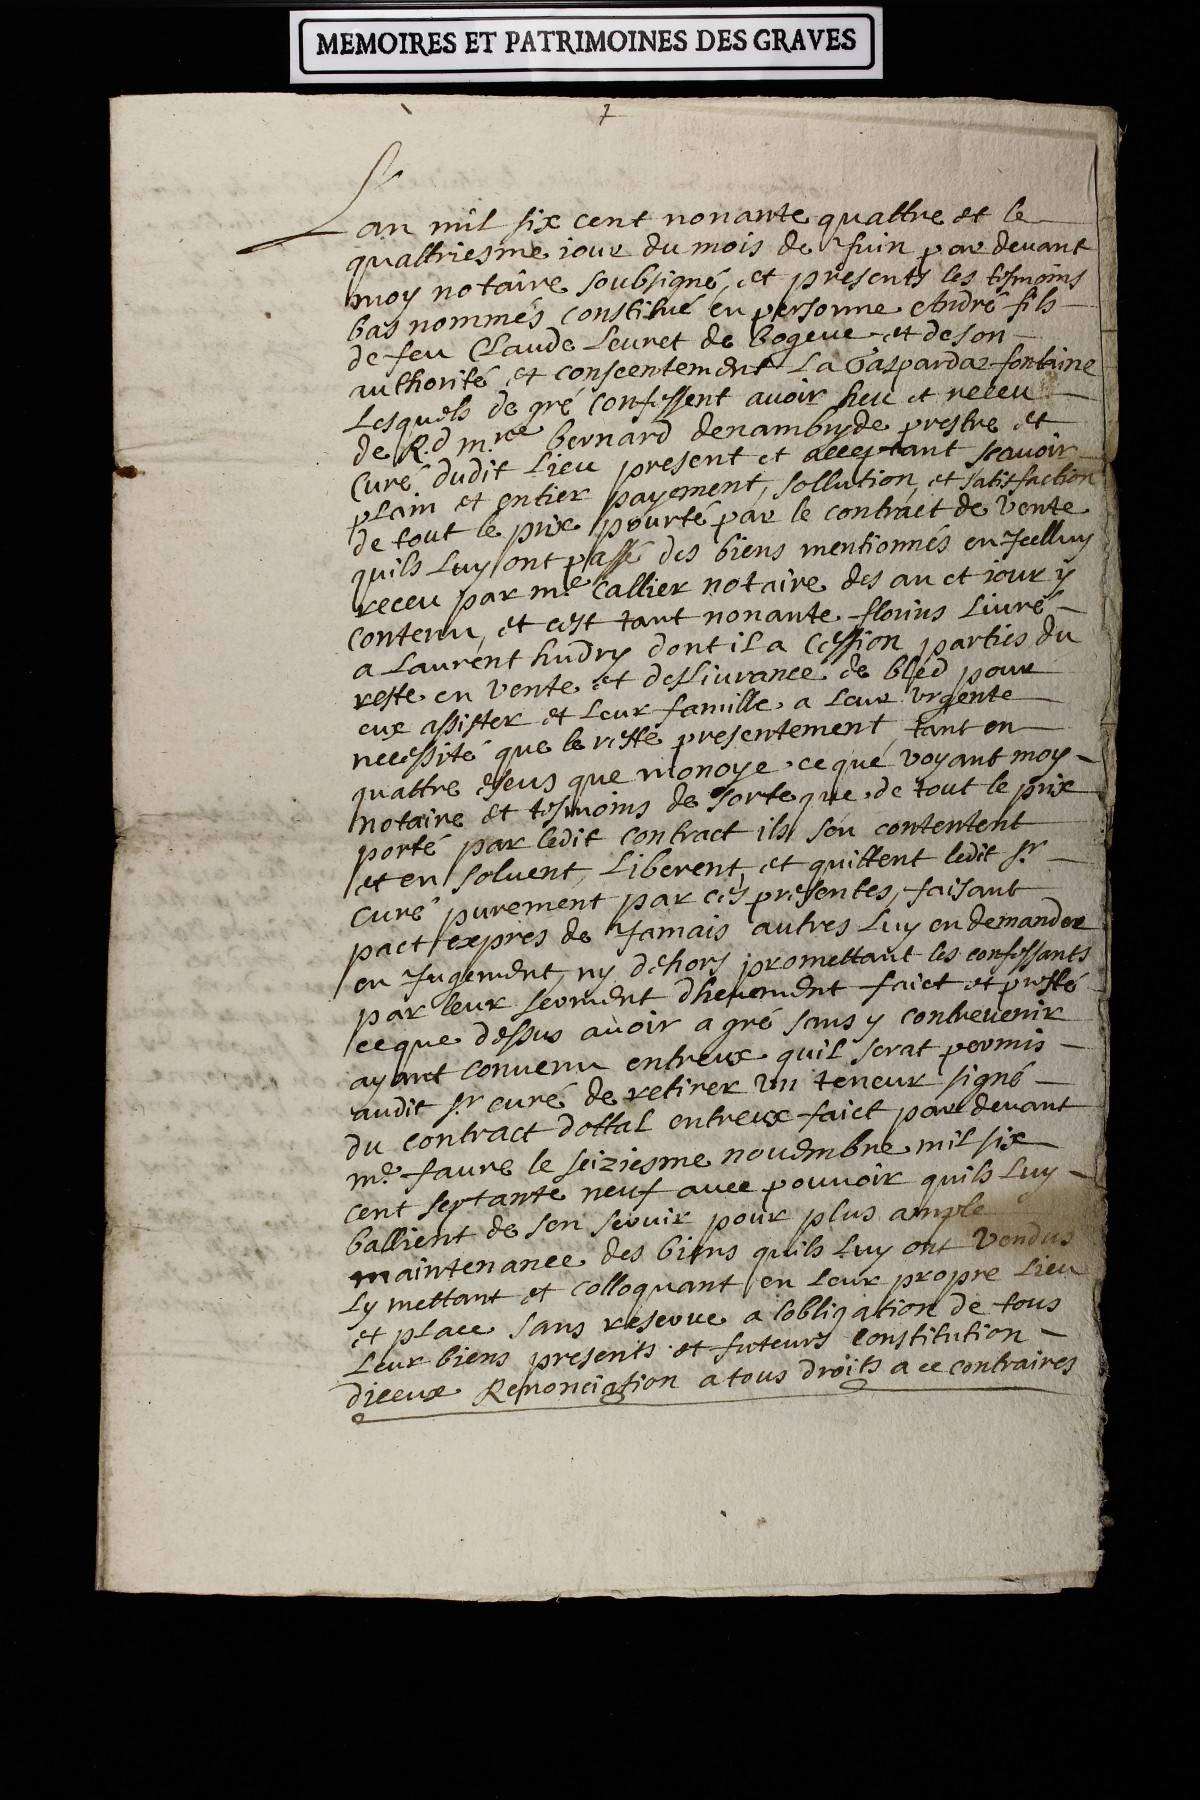 MEMOIRES ET PATRIMOINES DES GRAVES
Lan mil six cent nonante quattre et le
quattriesme iour du mois de Juin par devant
moy notaire soubsigné, et presents les tesmoins
bas nommés constitué en personne André fils
de feu Claude Leuret de bogeue et de son
authorité et consentement La Gasparda fontaine
Lesquels de gré confessent auoir heu et receu
de R.d m.re bernard denambride prestre et
Curé dudit Lieu present et acceptant scauoir
plain et entier payement, sollution, et satisfaction
de tout le prix pourté par le contract de vente
quils Luy ont passé des biens mentionnés en Jcelluy
receu par m.e Callier notaire des an et iour y
contenu, et cest tant nonante florins Liuré
a Laurent hudry dont il a Cession parties du
reste en vente et desliurance de bled pour
eux assister et Leur famille a Leur vrgente
necessité que le reste presentement tant en
quattre escus que monoye ce que voyant moy
notaire et tesmoins de sorte que de tout le prix
porté par ledit contract ils sen contentent
et en soluent, Liberent, et quittent ledit sr
Curé purement par ces presentes, faisant
pact expres de Jamais autres Luy en demander
en Jugement, ny dehors promettant les confessants
par leur serment dheuement faict et presté
ce que dessus auoir a gré sans y contreuenir
ayant conuenu entreux quil serat permis
audit sr curé de retirer vn teneur signé
du contract dottal entreux faict par deuant
m.e faure le seiziesme nouembre mil six
cent septante neuf auec pouuoir quils Luy
ballient de sen seruir pour plus ample
maintenance des biens quils Luy ont vendus
Ly mettant et colloquant en Leur propre Lieu
et place sans reserue a lobligation de tous
Leur biens presents et futeurs constitution
diceux Renonciation a tous droits a ce contraires